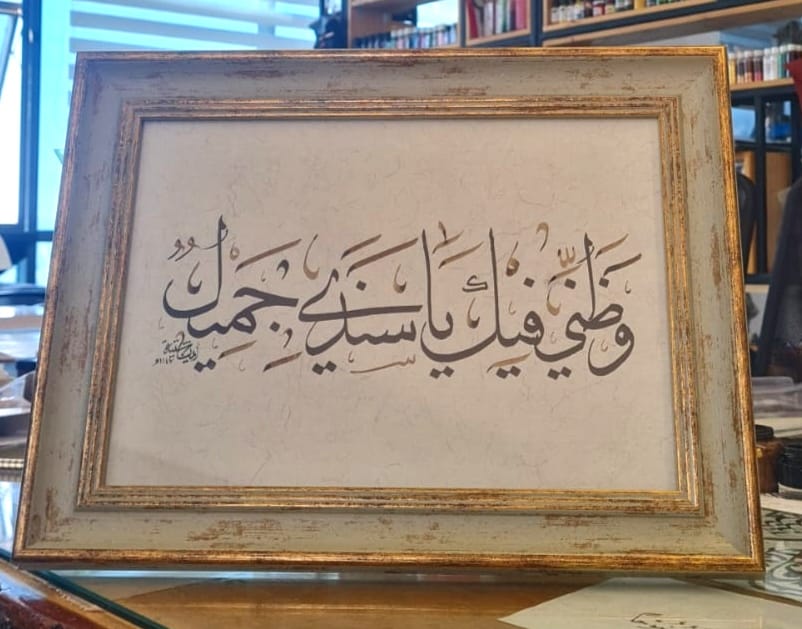 وَظَنِّي فِيْكَ يَا سَنَدِي جَمِيْلٌ